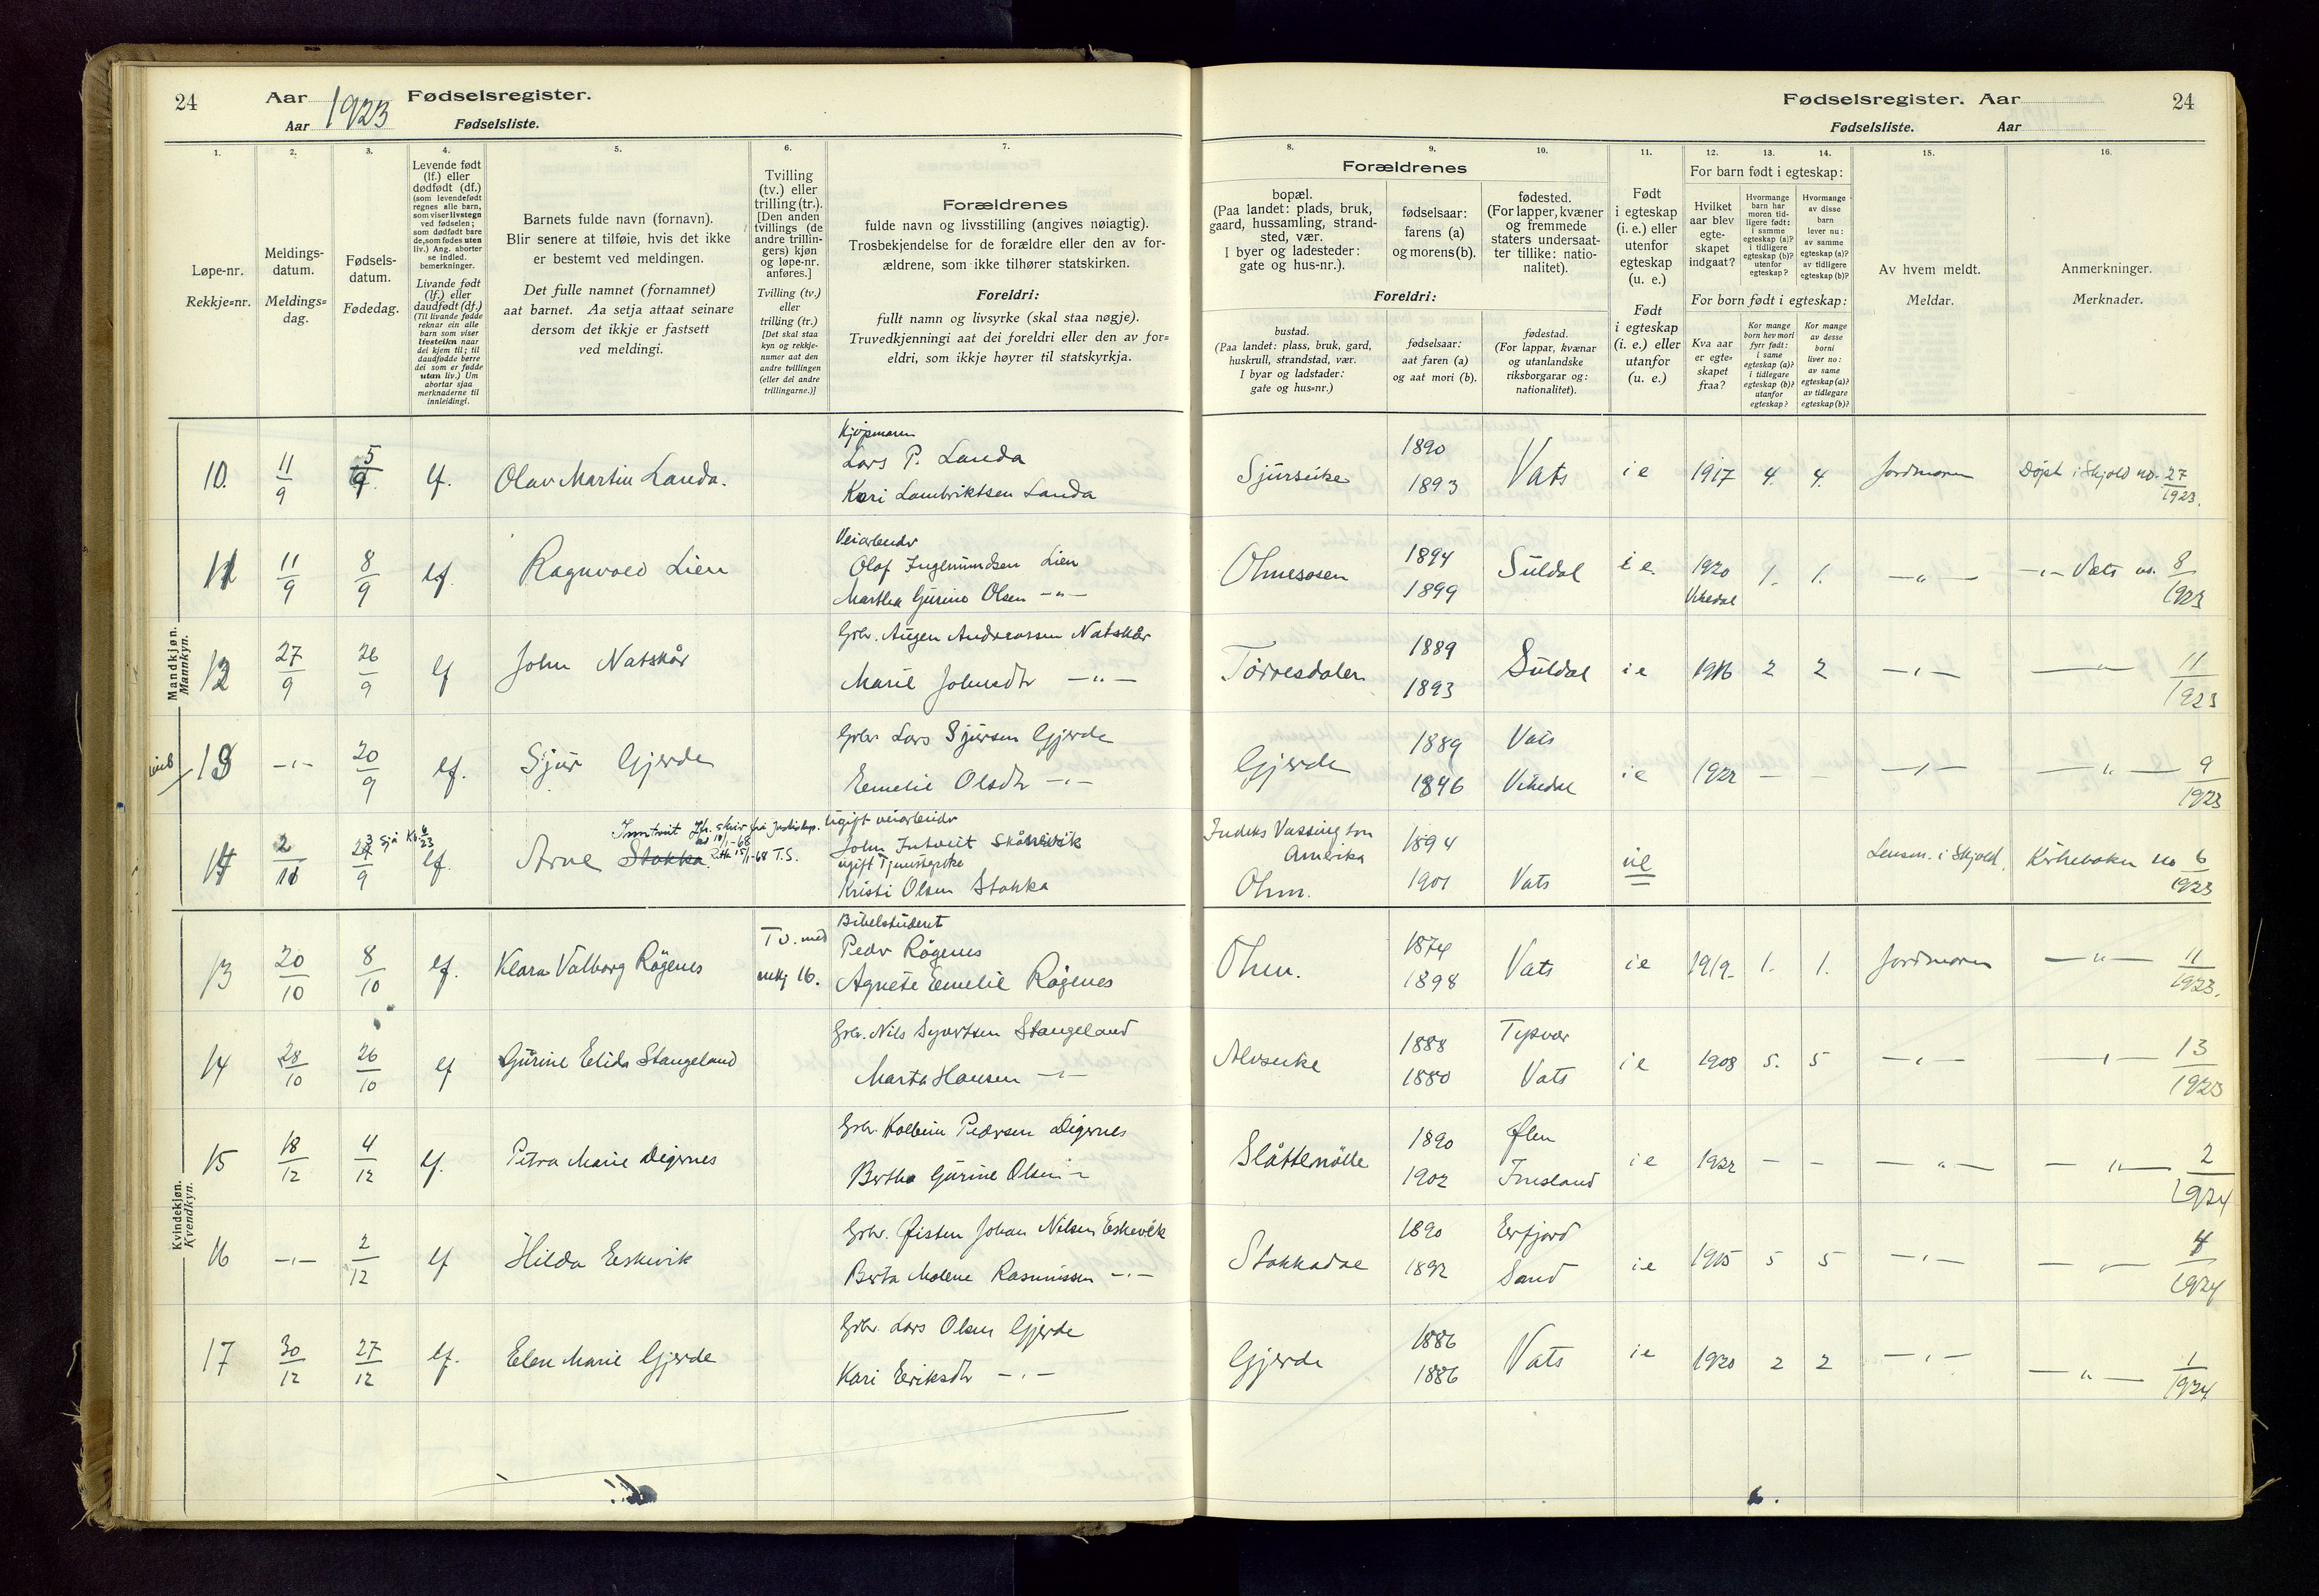 24 Aar 1923 Fødselsregister.
Aar Fødselsliste.
Fødselsregister. Aar 24
Fødselsliste. Aar
1. 2. 3. 4. 5. 6. 7.
Løpe-nr.
Rekkje=nr.
Meldings-
datum.
Meldings=
dag.
Fødsels-
datum.
Fødedag.
Levende født
(lf.) eller
dødfødt (df.)
(som levendefødt
regnes alle barn,
som viser livstegn
ved fødselen;
som dødfødt bare
de, som fødes uten
liv.) Ang. aborter
se indled.
bemerkninger.
Livande født
(lf.) eller
daudfødt (df.)
(Til livande fødde
reknar ein alle
barn som viser
livsteikn naar
dei kjem til; til
daudfødde berre
dei som er fødde
utan liv.) Um
abortar sjaa
merknaderne til
innleidingi.
Barnets fulde navn (fornavn).
Blir senere at tilføie, hvis det ikke
er bestemt ved meldingen.
Det fulle namnet (fornamnet)
aat barnet. Aa setja attaat seinare
dersom det ikkje er fastsett
ved meldingi.
Tvilling
(tv.) eller
trilling (tr.).
[Den anden
tvillings (de
andre trillin-
gers) kjøn
og løpe-nr.
anføres.]
Tvilling (tv.)
eller
trilling (tr.)
[Det skal staa
kyn og rekkje-
numer aat den
andre tvillingen
(eller dei andre
trillingarne.)]
Forældrenes
fulde navn og livsstilling (angives nøiagtig).
Trosbekjendelse for de forældre eller den av for-
ældrene, som ikke tilhører statskirken.
Foreldri:
fullt namn og livsyrke (skal staa nøgje).
Truvedkjenningi aat dei foreldri eller den av for=
eldri, som ikkje høyrer til statskyrkja.
8. 9. 10. 11. 12. 13. 14. 15. 16.
Forældrenes
bopæl.
(Paa landet: plads, bruk,
gaard, hussamling, strand-
sted, vær.
I byer og ladesteder:
gate og hus-nr.).
fødselsaar:
farens (a)
og morens (b).
fødested.
(For lapper, kvæner
og fremmede
staters undersaat-
ter tillike: natio-
nalitet).
Foreldri:
bustad.
(Paa landet: plass, bruk, gard,
huskrull, strandstad, vær.
I byar og ladstader:
gate og hus=nr.)
fødselsaar:
aat faren (a)
og aat mori (b).
fødestad.
(For lappar, kvænar
og utanlandske
riksborgarar og:
nationalitet).
Født
i egteskap
(i. e.) eller
utenfor
egteskap
(u. e.)
Født
i egteskap
(i. e.) eller
utanfor
(u. e.)
For barn født i egteskap:
Hvilket
aar blev
egte-
skapet
indgaat?
Hvormange
barn har
moren tid-
ligere født:
i samme
egteskap (a)?
i tidligere
egteskap (b)?
utenfor
egteskap?
Hvormange
av disse
barn
lever nu:
av samme
egteskap (a)?
av tidligere
egteskap (b)?
For born født i egteskap:
Kva aar
er egte-
skapet
fraa?
Kor mange
born hev mori
fyrr født:
i same
egteskap (a)?
i tidlegare
egteskap (b)?
utanfor
egteskap?
Kor mange
av desse
borni
liver no:
av same
egteskap (a)?
av tidlegare
egteskap (b)?
Av hvem meldt.
Meldar.
Anmerkninger.
Merknader.
Mandkjøn.
Mannkyn.
10. 11/9 5/9 lf. Olav Martin Landa. Kjøpmann
Lars P. Landa
Kari Lambriktsen Landa
Sjurseike 1890 1893 Vats i e 1917 4. 4. Jordmoren Døpt i Skjold no. 27/1923.
11 11/9 8/9 lf. Ragnvald Lien Veiarbeidr
Olaf Ingemundsen Lien
Martha Gurine Olsen —"—
Ølmesosen 1894 1899 Suldal i e. 1920 Vikedal 1. 1. —"— —"— Vats no. 8/1923
12 27/9 26/9 lf John Natskår Gbr. Augen Andreassen Natskår
Marie Johnsdtr —"—
Torresdalen 1889 1893 Suldal i e 1916 2 2 —"— —"— 11/1923
13 —"— 20/9 lf. Sjur Gjerde Gbr. Lars Sjursen Gjerde
Emelie Olsdtr —"—
Gjerde 1889 1896 Vats Vikedal i e 1922 — — —"— —"— 9/1923
14 2/11 9 Sjå Kb 6/23 lf. Arne Stokka Inntveit 15/1-68 T.S.
Ugift veiarbeidr
John Intveit Skånevik
ugift Tjenestepike
Kristi Olsen Stokka
Amerika
Ølm. 1894 1901 Vats ue Lensm. i Skjold. Kirkeboken no 6/1923
Kvindekjøn.
Kvendkyn.
13 20/10 8/10 lf. Klara Valborg Røgenes Tv. med
rekj 16.
Bibelstuderet
Peder Røgenes
Agnete Emelie Røgenes
Ølen. 1874 1898 Vats i e 1919. 1. 1. Jordmoren —"— 11/1923.
14 28/10 26/10 lf Gurine Elida Stangeland Gbr. Nils Syvertsen Stangeland
Marta Hansen —"—
Alvseike 1888 1880 Tysvær Vats i e 1908 5. 5 —"— —"— 13/1923
15 18/12 4/12 lf. Petra Marie Digernes Gbr. Kolbein Pedersen Digernes
Bertha Gurine Olsen —"—
Slåttemølle 1890 1902 Ølen Imsland i e 1922 — — —"— —"— 2/1924
16 —"— 2/12 lf Hilda Eskevik Gbr. Øisten Johan Nilsen Eskevik
Berta Malene Rasmussen —"—
Stokkadal 1890 1892 Erfjord Sand i e 1915 5 5 —"— —"— 4/1924
17 30/12 27/12 lf. Elen Marie Gjerde Gbr. Lars Olsen Gjerde
Kari Eriksdtr —"—
Gjerde 1886 1886 Vats i e 1920 2 2 —"— —"— 1/1924